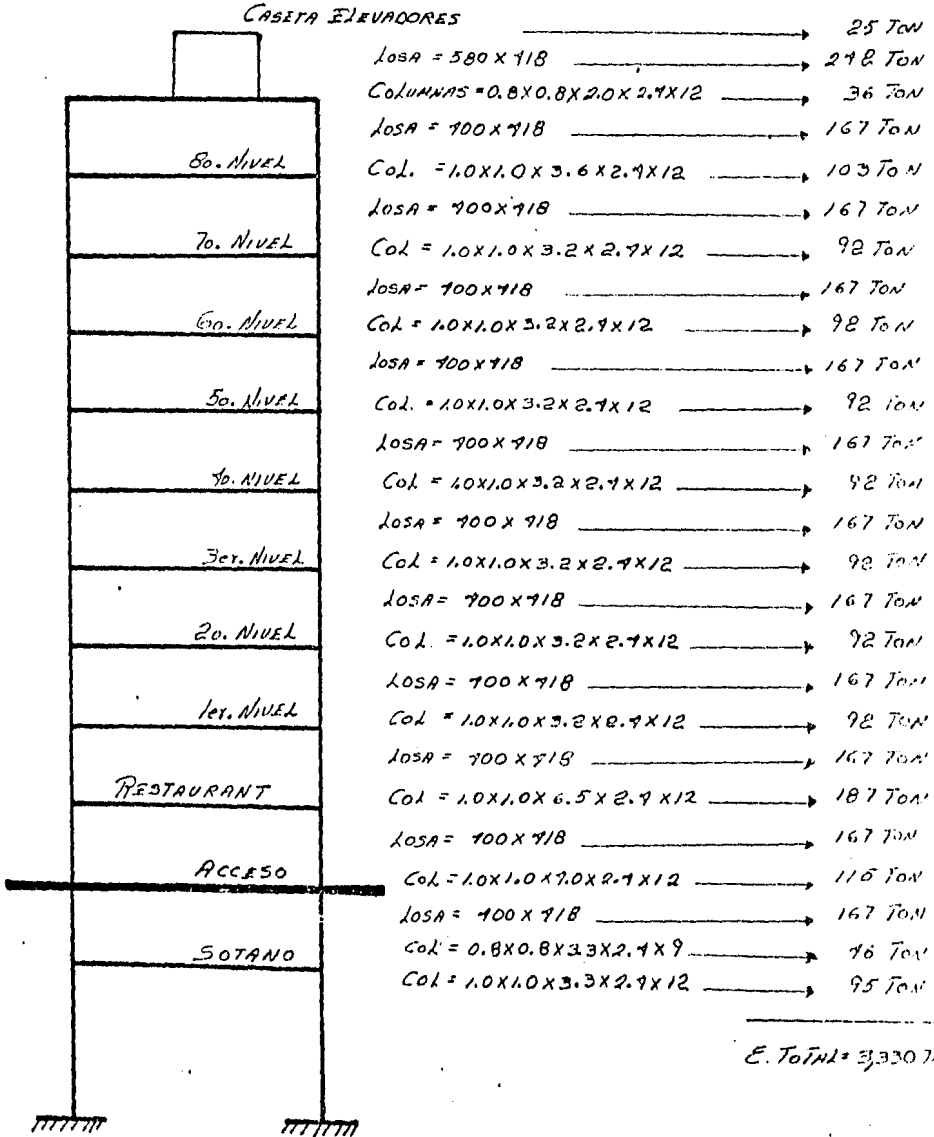 CASETA ELEVADORES 25 TON
LOSA = 580 X 418 242 TON
COLUMNAS = 0.8X0.8X2.0X2.4X12 36 TON
LOSA = 400 X 418 167 TON
8o. NIVEL COL. = 1.0X1.0X3.6X2.4X12 103 TON
LOSA = 400X418 167 TON
7o. NIVEL COL = 1.0X1.0X3.2X2.4X12 92 TON
LOSA = 400X418 167 TON
6o. NIVEL COL = 1.0X1.0X3.2X2.4X12 92 TON
LOSA = 400X418 167 TON
5o. NIVEL COL. = 1.0X1.0X3.2X2.4X12 92 TON
LOSA = 400X418 167 TON
4o. NIVEL COL = 1.0X1.0X3.2X2.4X12 92 TON
LOSA = 400 X 418 167 TON
3er. NIVEL COL = 1.0X1.0X3.2X2.4X12 92 TON
LOSA = 400X418 167 TON
2o. NIVEL COL. = 1.0X1.0X3.2X2.4X12 92 TON
LOSA = 400X418 167 TON
1er. NIVEL COL = 1.0X1.0X3.2X2.4X12 92 TON
LOSA = 400X418 167 TON
RESTAURANT COL = 1.0X1.0X6.5X2.4X12 187 TON
LOSA = 400X418 167 TON
ACCESO COL = 1.0X1.0X4.0X2.4X12 115 TON
LOSA = 400X418 167 TON
SOTANO COL = 0.8X0.8X3.3X2.4X9 46 TON
COL = 1.0X1.0X3.3X2.4X12 95 TON
E. TOTAL = 3,330 T